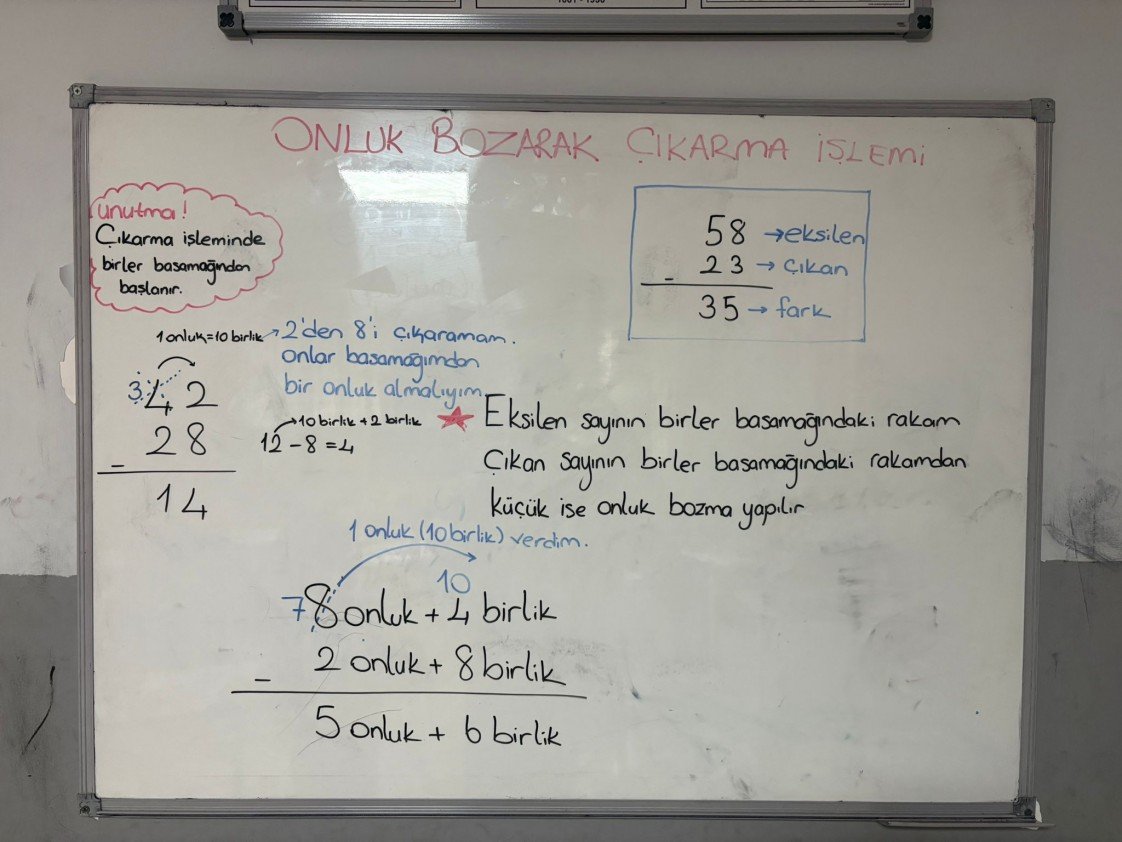 ONLUK BOZARAK ÇIKARMA İŞLEMİ
unutma!
Çıkarma işleminde
birler basamağından
başlanır.
58 → eksilen
- 23 → çıkan
35 → fark
1 onluk=10 birlik → 2'den 8'i çıkaramam.
onlar basamağımdan
bir onluk almalıyım.
3 42
- 28
14
10 birlik + 2 birlik
12 - 8 = 4
Eksilen sayının birler basamağındaki rakam
Çıkan sayının birler basamağındaki rakamdan
küçük ise onluk bozma yapılır
1 onluk (10 birlik) verdim.
10
7 8 onluk + 4 birlik
- 2 onluk + 8 birlik
5 onluk + 6 birlik